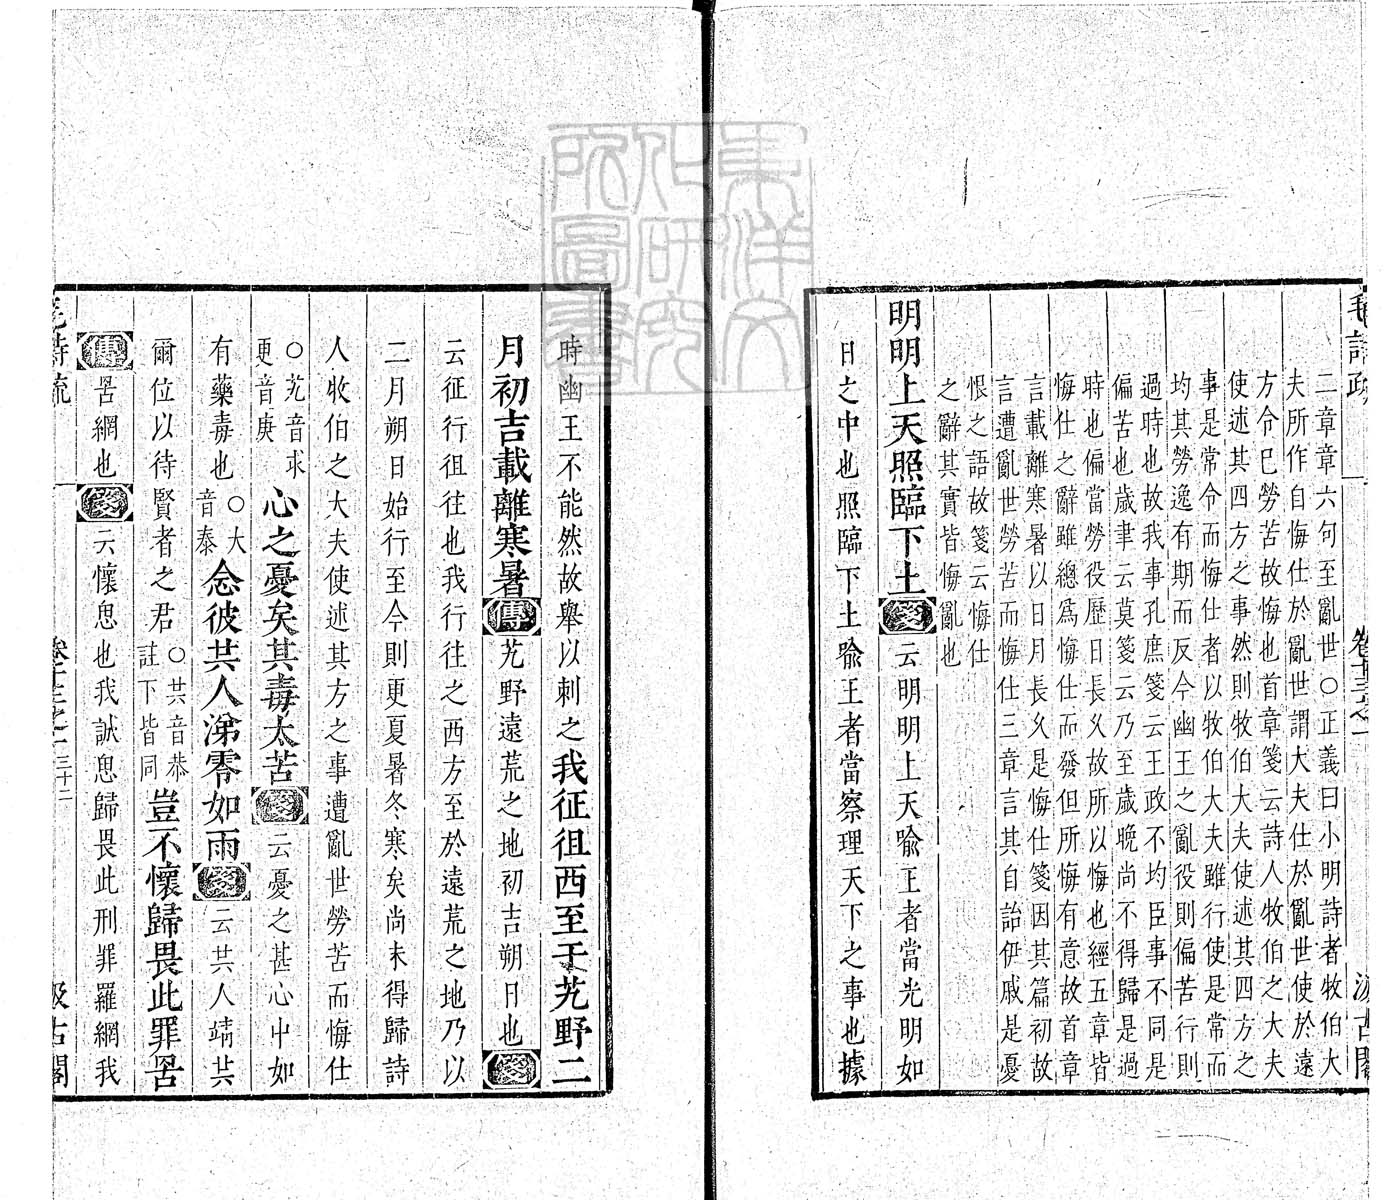 毛詩疏 卷十三之一 汲古閣
二章章六句至亂世○正義曰小明詩者牧伯大
夫所作自悔仕於亂世謂大夫仕於亂世使於遠
方令已勞苦故悔也首章箋云詩人牧伯之大夫
使述其四方之事然則牧伯大夫使述其四方之
事是常令而悔仕者以牧伯大夫雖行使是常而
均其勞逸有期而反今幽王之亂役則偏苦行則
過時也故我事孔庶箋云王政不均臣事不同是
偏苦也歲聿云莫箋云乃至歲晚尚不得歸是過
時也偏當勞役歷日長久故所以悔也經五章皆
悔仕之辭雖總爲悔仕而發但所悔有意故首章
言載離寒暑以日月長久是悔仕箋因其篇初故
言遭亂世勞苦而悔仕三章言其自詒伊戚是憂
恨之語故箋云悔仕
之辭其實皆悔亂也
明明上天照臨下土箋云明明上天喻王者當光明如
日之中也照臨下土喻王者當察理天下之事也據
時幽王不能然故舉以刺之我征徂西至于艽野二
月初吉載離寒暑傳艽野遠荒之地初吉朔日也箋
云征行徂往也我行往之西方至於遠荒之地乃以
二月朔日始行至今則更夏暑冬寒矣尚未得歸詩
人牧伯之大夫使述其方之事遭亂世勞苦而悔仕
○艽音求更音庚心之憂矣其毒大苦箋云憂之甚心中如
有藥毒也○大音泰念彼共人涕零如雨箋云共人靖共
爾位以待賢者之君○共音恭註下皆同豈不懷歸畏此罪罟
傳罟網也箋云懷思也我誠思歸畏此刑罪羅網我
毛詩疏 卷十三之一 三十二 汲古閣
東洋文化研究所圖書